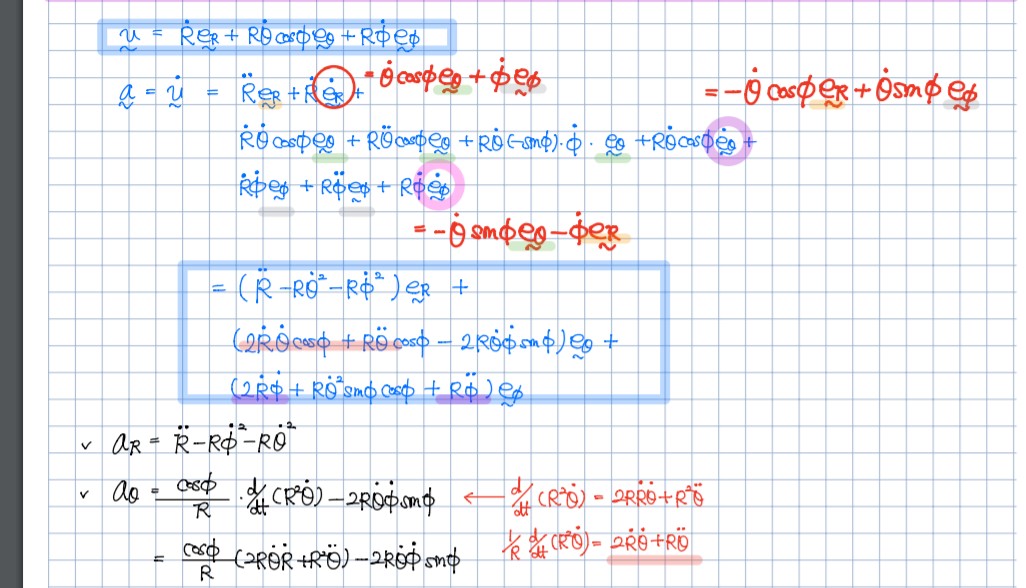 u = Ṙe_R + Rθ̇cosϕe_θ + Rϕ̇e_ϕ
= θ̇cosϕe_θ + ϕ̇e_ϕ
= -θ̇cosϕe_R + θ̇sinϕe_ϕ
a = u̇ = R̈e_R + Ṙė_R +
Ṙθ̇cosϕe_θ + Rθ̈cosϕe_θ + Rθ̇(-sinϕ)·ϕ̇·e_θ + Rθ̇cosϕė_θ +
Ṙϕ̇e_ϕ + Rϕ̈e_ϕ + Rϕ̇ė_ϕ
= -θ̇sinϕe_θ - ϕ̇e_R
= (R̈ - Rθ̇² - Rϕ̇²)e_R +
(2Ṙθ̇cosϕ + Rθ̈cosϕ - 2Rθ̇ϕ̇sinϕ)e_θ +
(2Ṙϕ̇ + Rθ̇²sinϕcosϕ + Rϕ̈)e_ϕ
✓ a_R = R̈ - Rϕ̇² - Rθ̇²
✓ a_θ = cosϕ/R · d/dt(R²θ̇) - 2Rθ̇ϕ̇sinϕ ← d/dt(R²θ̇) = 2RṘθ̇ + R²θ̈
= cosϕ/R (2Rθ̇Ṙ + R²θ̈) - 2Rθ̇ϕ̇sinϕ
1/R d/dt(R²θ̇) = 2Ṙθ̇ + Rθ̈